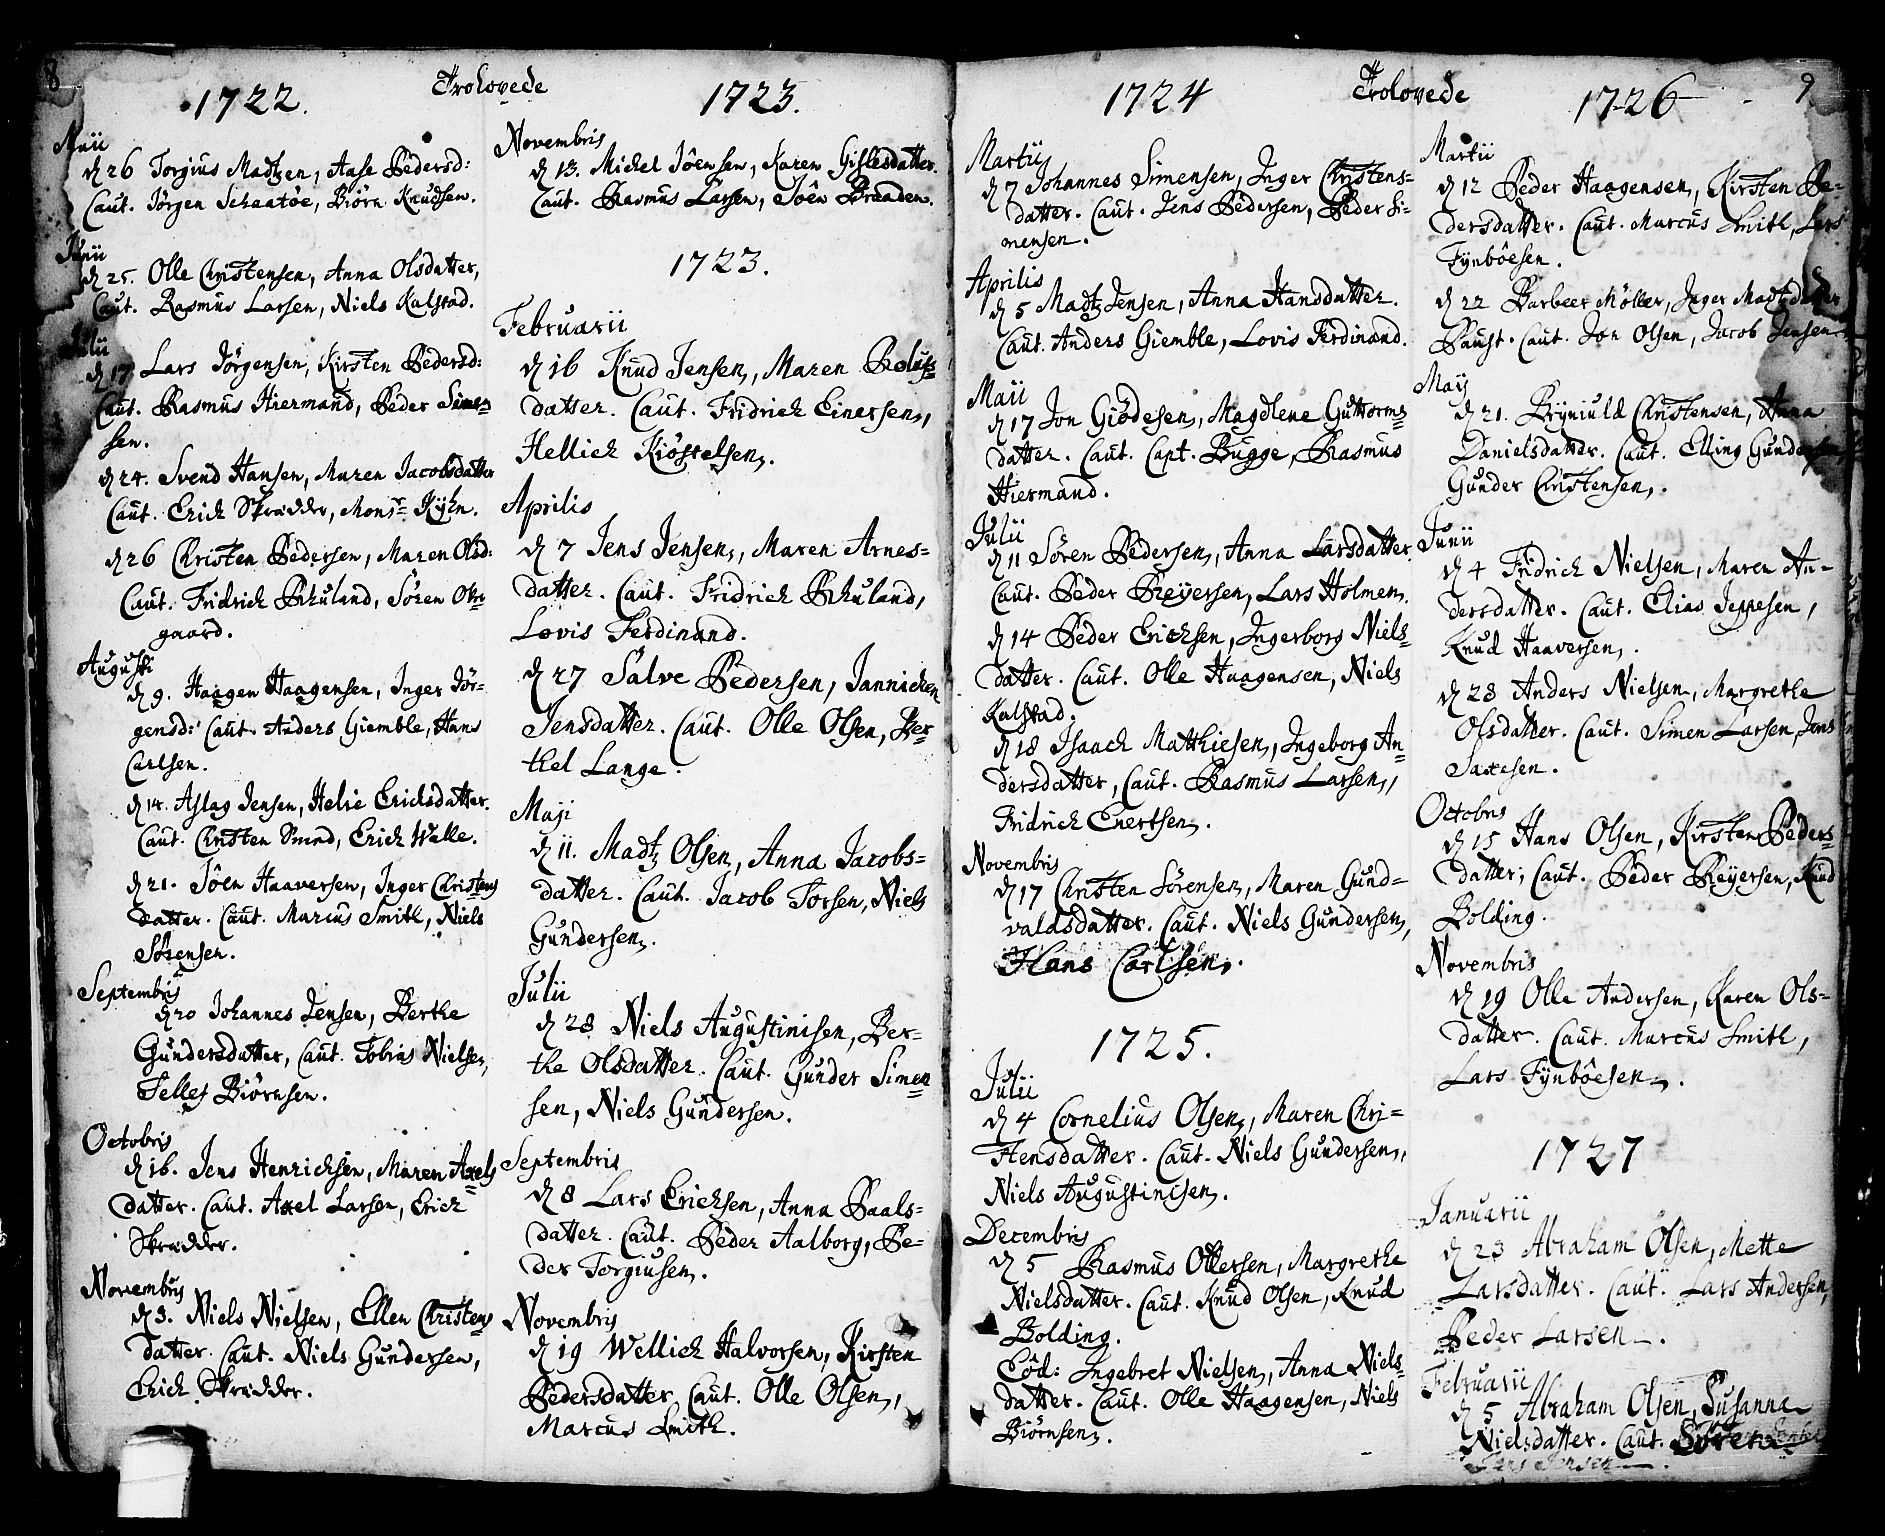 8
Trolovede
1722.
Maii
d 26 Torgius Madtzen, Aase Pedersd:
Caut. Jörgen Schaatöe, Biörn Knudsen.
Junii
d 25. Olle Christensen, Anna Olsdatter,
Caut. Rasmus Larsen, Niels Kalstad.
Julii
d 17 Lars Jörgensen, Kirsten Pedersd:
Caut. Rasmus Hiermand, Peder Simen=
sen.
d 24. Svend Hansen, Maren Jacobsdatter
Caut. Erich Skrædder, Monsr Kyhn.
d 26 Christen Pedersen, Maren Olsd:
Caut. Fridrich Rhuland, Sören
gaard.
Augusti
d 9. Haagen Haagensen, Inger Jör=
gensd: Caut. Anders Giemble, Hans
Carlsen.
d 14. Aslag Jensen, Helie Erichsdatter.
Caut. Christen Smed, Erich Walle.
d 21. Jöen Haaversen, Inger Christens
datter. Caut. Marcus Smith, Niels
Sörensen.
Septembris
d 20 Johannes Jensen, Berthe
Gundersdatter, Caut. Tobias Nielsen,
Tellef Biörnsen.
Octobris
d 16. Jens Henrichsen, Maren Axels
datter. Caut. Axel Larsen, Erich
Skrædder.
Novembris
d 3. Niels Nielsen, Ellen Christens
datter. Caut. Niels Gundersen,
Erich Skrædder.
1723.
Novembris
d 13. Michel Jöensen, Karen Gislesdatter.
Caut. Rasmus Larsen, Jöen Braaden.
1723.
Februarii
d 16 Knud Jensen, Maren Rolufs=
datter. Caut. Fridrich Einersen,
Hellich Kiöstelsen.
Aprilis
d 7 Jens Jensen, Maren Arnes=
datter. Caut. Fridrich Rhuland,
Lovis Ferdinand.
d 27 Salve Pedersen, Jannicken
Jensdatter. Caut. Olle Olsen, Ber=
thel Lange.
Maji
d 11. Madtz Olsen, Anna Jacobs=
datter. Caut. Jacob Torsen, Niels
Gundersen.
Julii
d 28 Niels Augustinisen, Ber=
the Olsdatter. Caut. Gunder Simen=
sen, Niels Gundersen.
Septembris
d 8 Lars Erichsen, Anna Paals=
datter. Caut. Peder Aalborg, Pe=
der Torgiusen.
Novembris
d 19 Wellich Halvorsen, Kirsten
Pedersdatter, Caut. Olle Olsen,
Marcus Smith.
9
Trolovede
1724
Martii
d 7 Johannes Simensen, Inger Christens=
datter. Caut. Jens Pedersen, Peder Si=
mensen.
Aprilis
d 5 Madtz Jensen, Anna Hansdatter.
Caut. Anders Giemble, Lovis Ferdinand.
Maii
d 17 Jon Giödesen, Magdlene Guttorms=
datter. Caut. Capt. Bugge, Rasmus
Hiermand.
Julii
d 11 Sören Pedersen, Anna Larsdatter
Caut. Peder Reyersen, Lars Holmen.
d 14 Peder Erichsen, Ingerborg Niels=
datter. Caut. Olle Haagensen, Niels
Kalstad.
d 18 Isaach Matthiesen, Ingeborg An=
dersdatter, Caut. Rasmus Larsen,
Fridrich Enertsen.
Novembris
d 17 Christen Sörensen, Maren Gund=
valdsdatter. Caut. Niels Gundersen,
Hans Carlsen.
1725.
Julii
d 4 Cornelius Olsen, Maren Chri=
stensdatter. Caut. Niels Gundersen,
Niels Augustinisen.
Decembris
d 5 Rasmus Ottersen, Margrethe
Nielsdatter. Caut. Knud Olsen, Knud
Bolding.
Eöd: Ingebret Nielsen, Anna Niels=
datter. Caut. Olle Haagensen, Niels
Biörnsen.
1726
Martii
d 12 Peder Haagensen, Kirsten Pe=
dersdatter. Caut. Marcus Smith, Lars
Fynböesen.
d 22 Barbeer Möller, Inger Madtzdatter
Baust. Caut. Jon Olsen, Jacob Jensen
Maij
d 21. Bryniuld Christensen, Anna
Danielsdatter. Caut. Elling Gundersen
Gunder Christensen.
Junii
d 4 Fridrich Nielsen, Maren An=
dersdatter. Caut. Elias Jeppesen,
Knud Haaversen.
d 28 Anders Nielsen, Margrethe
Olsdatter. Caut. Simen Larsen, Jens
Saxesen.
Octobris
d 15 Hans Olsen, Kirsten Peders=
datter, Caut. Peder Reyersen, Knud
Bolding.
Novembris
d 19 Olle Andersen, Karen Ols=
datter. Caut. Marcus Smith,
Lars Fynböesen.
1727
Januarii
d 23 Abraham Olsen, Mette
Larsdatter. Caut. Lars Andersen,
Peder Larsen.
Februarii
d 5 Abraham Olsen, Susanna
Nielsdatter. Caut. Sören
Jensen.